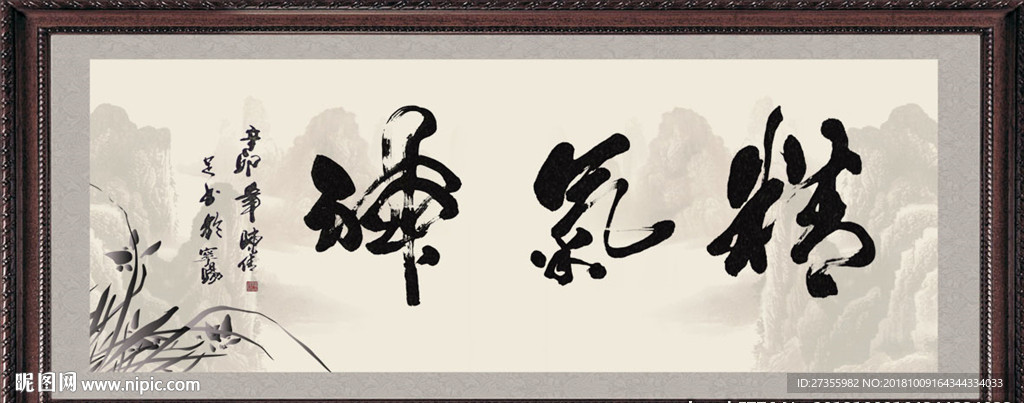 精氣神
辛卯年
是書於寧陽
昵图网 www.nipic.com
ID:27355982 NO:20181009164344334033